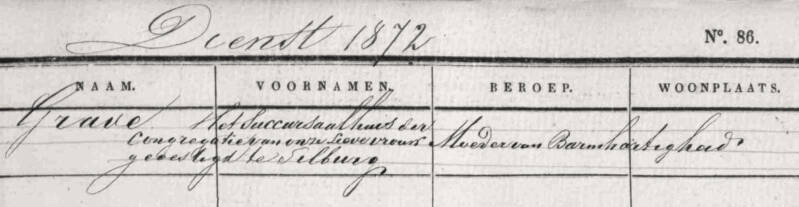 Dienst 1872
No. 86.
NAAM. VOORNAMEN. BEROEP. WOONPLAATS.
Grave Het Succursaalhuis der
Congregatie van onze Lieve vrouw Moeder van Barmhartigheid
gevestigd te Tilburg